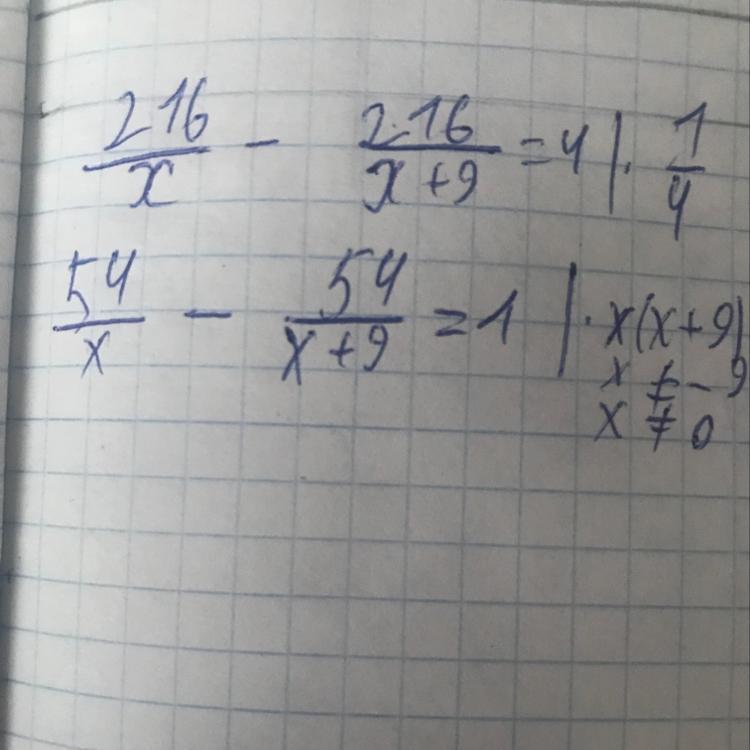 216/x - 216/x+9 = 4 | · 1/4
54/x - 54/x+9 = 1 | · x(x+9)
x ≠ -9
x ≠ 0